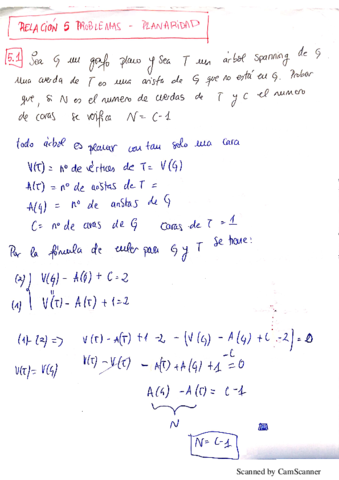 RELACIÓN 5 PROBLEMAS - PLANARIDAD
5.1 Sea G un grafo plano y sea T un árbol spanning de G
una cuerda de T es una arista de G que no está en G. Probar
que, si N es el numero de cuerdas de T y C el numero
de caras se verifica N = C-1
todo árbol es planar con tan solo una cara
V(T) = nº de vértices de T = V(G)
A(T) = nº de aristas de T =
A(G) = nº de aristas de G
C = nº de caras de G caras de T = 1
Por la fórmula de euler para G y T se tiene:
(2) V(G) - A(G) + C = 2
(1) V(T) - A(T) + 1 = 2
(1)-(2) => V(T) - A(T) + 1 - 2 - {V(G) - A(G) + C - 2} = 0
V(T) = V(G) V(T) - V(T) - A(T) + A(G) + 1 - C = 0
A(G) - A(T) = C - 1
N
N = C-1
Scanned by CamScanner